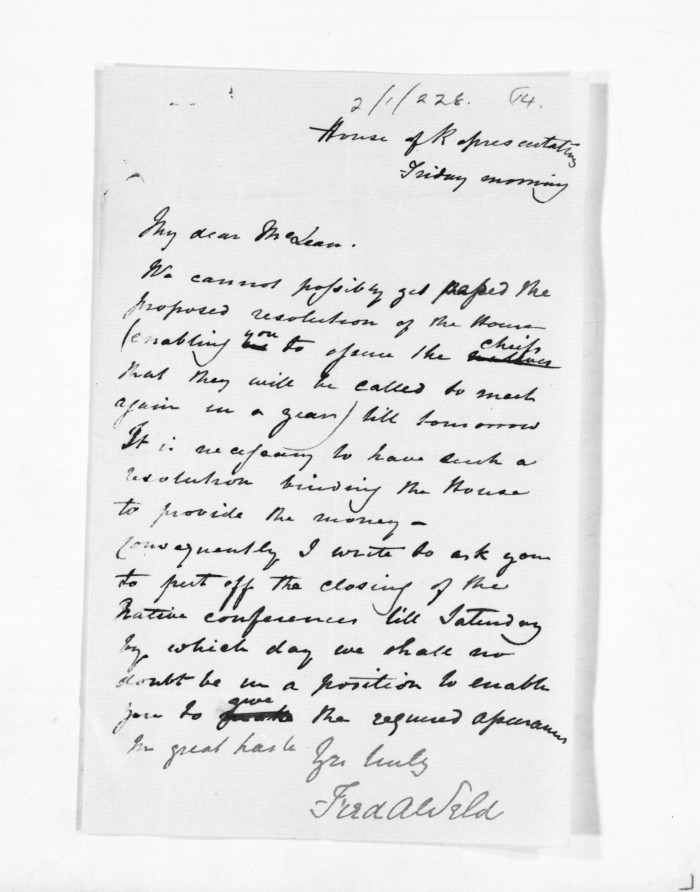 2/1/228. 14.
House of Representatives
Friday morning
My dear McLean.
We cannot possibly get passed the
proposed resolution of the House
(enabling you to assure the chiefs
that they will be called to meet
again in a year) till tomorrow
It is necessary to have such a
resolution binding the House
to provide the money -
Consequently I write to ask you
to put off the closing of the
Native conferences till Saturday
by which day we shall no
doubt be in a position to enable
you to give the required assurances
In great haste Yrs truly
Fred A Weld